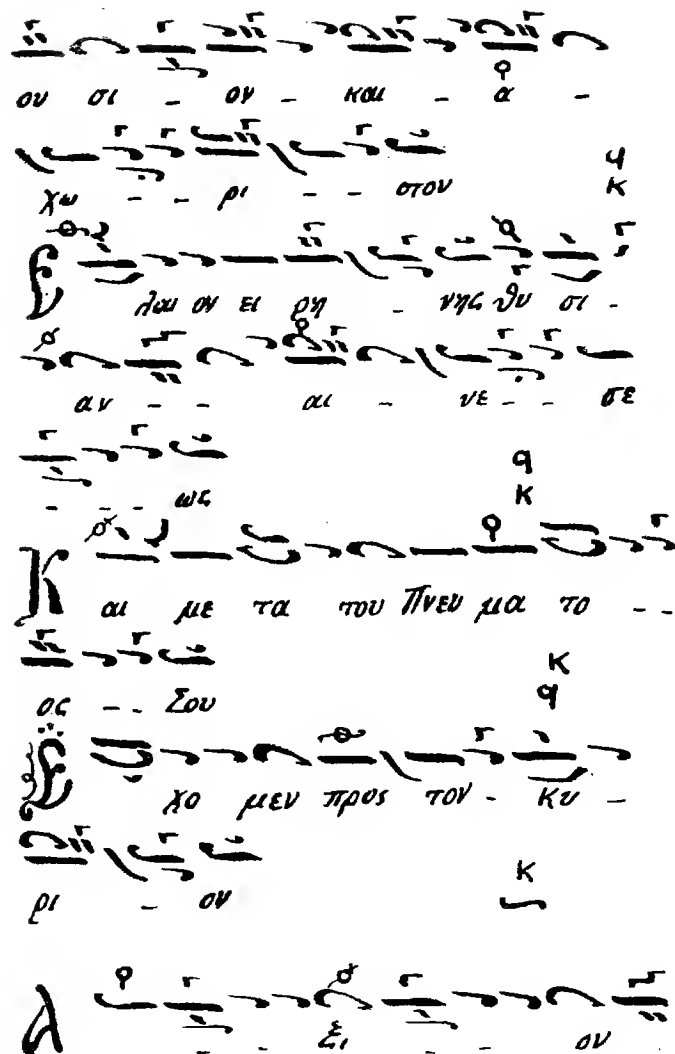 ου σι - ον - και - α -
χω - - ρι - - στον
Ε λαι ον ει ρη - νης θυ σι -
αν - - αι - νε - - σε
- - - ως
Κ αι με τα του Πνευ μα το - -
ος - - Σου
Ε χο μεν προς τον - Κυ -
ρι - ον
Α - - ξι - - ον